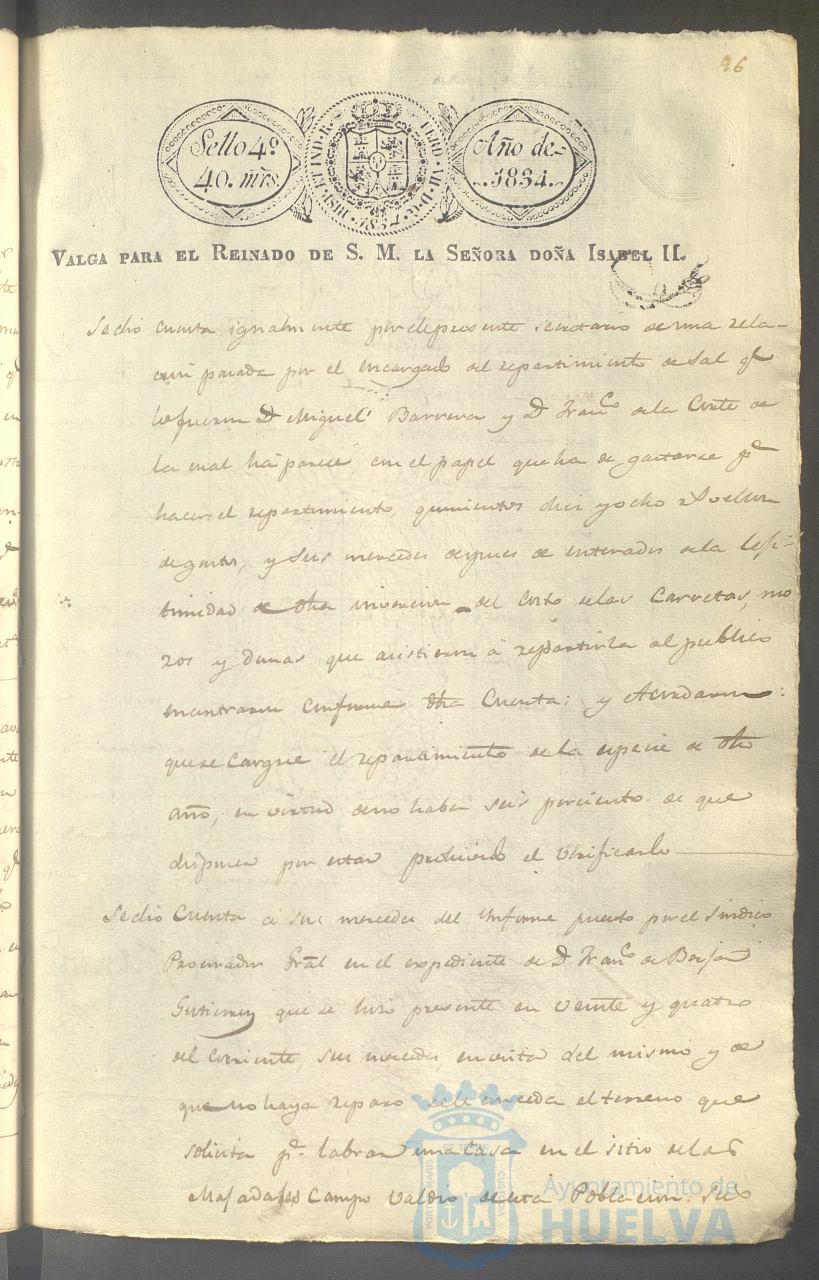 96
Sello 4º
40. mrs.
HISP. ET IND. R. FERD. VII. D. G.
1834
Año de
1834.
VALGA PARA EL REINADO DE S. M. LA SEÑORA DOÑA ISABEL II.
Se dio cuenta igualmente por el presente secretario de una rela-
cion pasada por el encargado del repartimiento de Sal qe
lo fueron Dn Miguel Barrera y Dn Franco de la Corte de
la cual há parece con el papel que ha de gastarse pa
hacer el repartimiento, quinientos diez y ocho rs vellon
de gastos, y Sus mercedes despues de enterados de la lejî-
timidad de dha inversion del costo de las Carretas, mo
zos y demas que asistieron á repartirla al publico
encontraron conforme dha Cuenta: y Acordaron:
que se Cargue el repartimiento de la especie de dho
año, en virtud de no haber seis por ciento de que
disponer por estar prohivido el verificarlo
Se dio Cuenta á sus mercedes del Ynforme puesto por el Sindico
Procurador Gral en el expediente de Dn Franco de Borja
Gutierrez que se hizo presente en veinte y quatro
del corriente, sus mercedes, en vista del mismo y de
que no haya reparo se le conceda el terreno que
solicita pa labrar una Casa en el sitio de las
Campo Valdio de esta Poblacion. Sus
PORTUS MARIS
ET TERRE
CUSTODIA
Ayuntamiento de
HUELVA